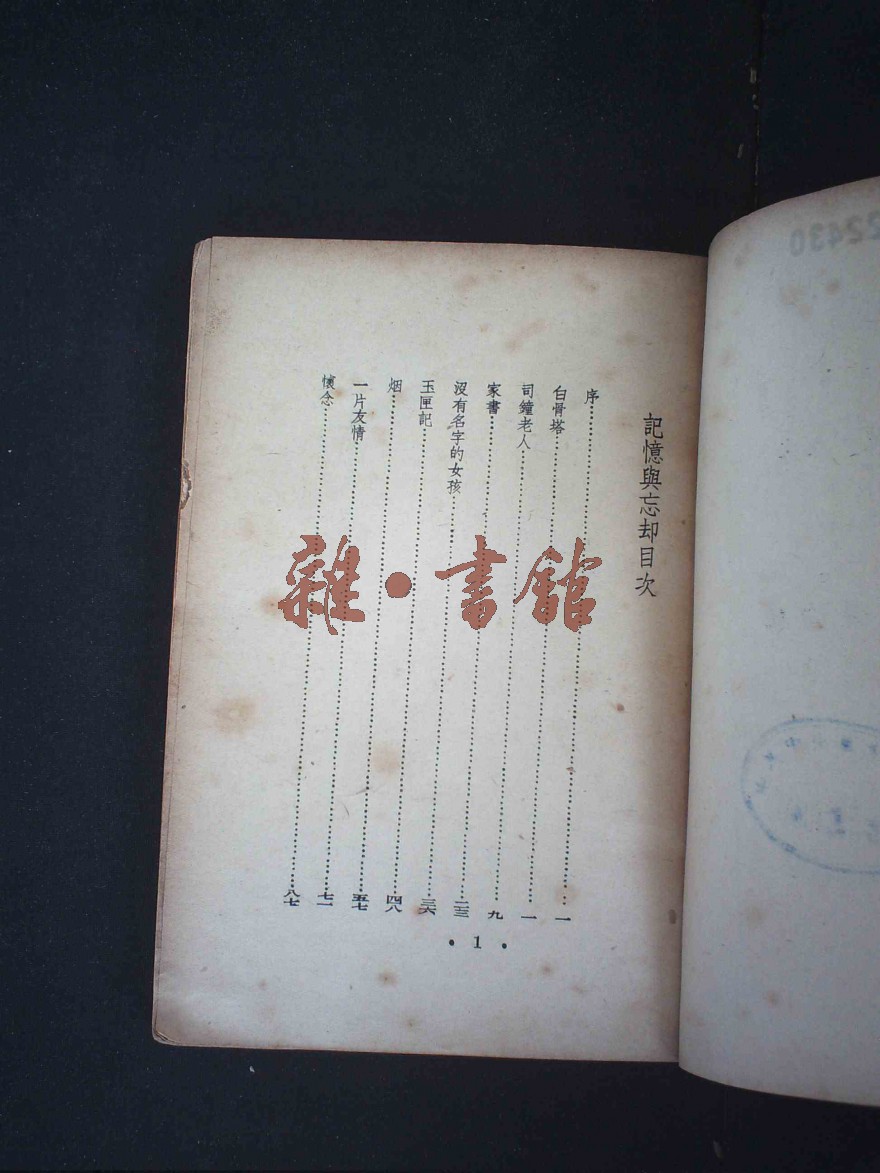 記憶與忘却目次
序……一
白骨塔……一
司鐘老人……九
家書……二三
沒有名字的女孩……三六
玉匣記……四八
烟……五七
一片友情……七一
懷念……八七
• 1 •
雜·書館
22430